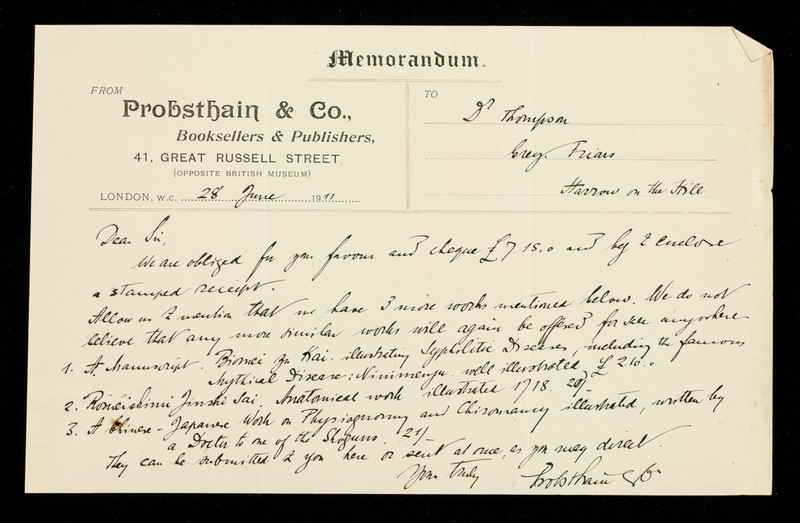 Memorandum.
FROM
Probsthain & Co.,
Booksellers & Publishers,
41, GREAT RUSSELL STREET,
(OPPOSITE BRITISH MUSEUM)
LONDON, W.C. 28 June 1911
TO
Dr Thompson
Grey Friars
Harrow on the Hill
Dear Sir,
We are obliged for your favour and cheque £7 15.0 and beg to enclose
a stamped receipt.
Allow us to mention that we have 3 more works mentioned below. We do not
believe that any more similar works will again be offered for sale anywhere
1. A Manuscript. Biomei zu Kai. illustrating Syphilitic Diseases, including the famous
Mythical Disease: Ninmenju. well illustrated £2.10.0
2. Jinshi Sai. Anatomical work illustrated 1718. 20/-
3. A Chinese-Japanese Work on Physiognomy and Chiromancy illustrated, written by
a Doctor to one of the Shoguns. 21/-
They can be submitted to you here or sent at once, as you may direct.
Yours truly
Probsthain & Co